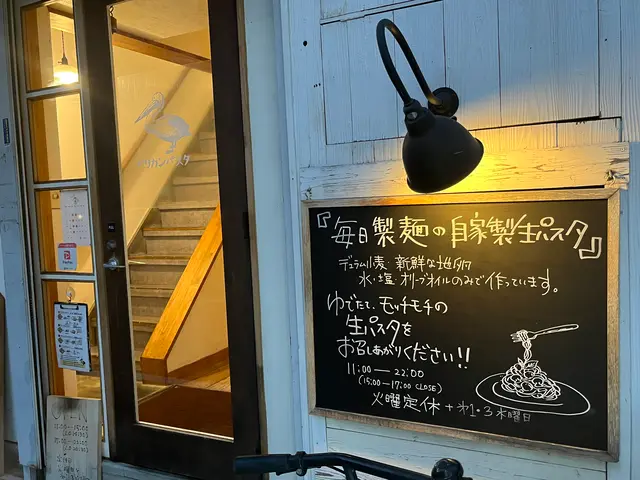 リカンパスタ
PayPay
『毎日製麺の自家製生パスタ』
デュラム小麦・新鮮な地卵
水・塩・オリーブオイルのみで作っています。
ゆでたて、モッチモチの
生パスタを
お召しあがりください!!
11:00 ― 22:00
(15:00-17:00 CLOSE)
火曜定休+第1・3木曜日
OPEN